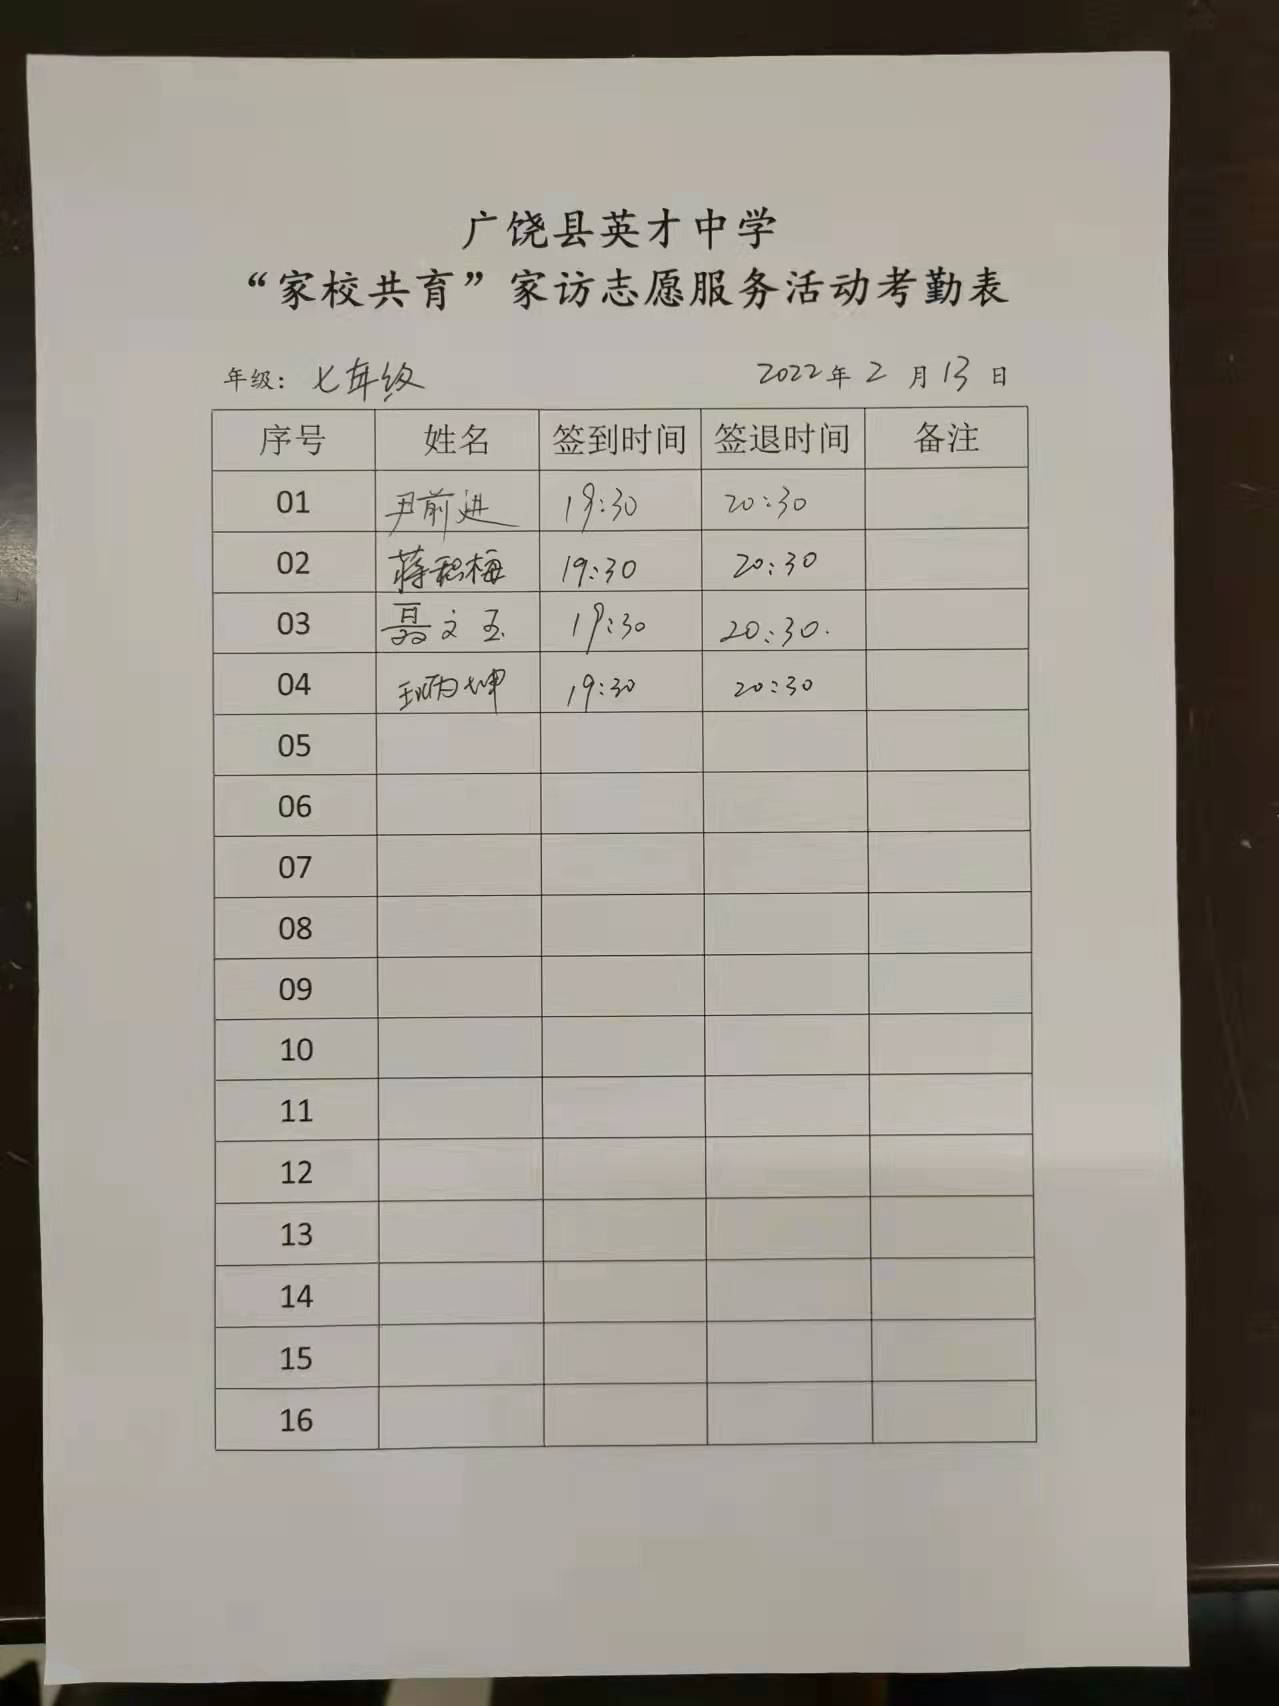 广饶县英才中学
“家校共育”家访志愿服务活动考勤表
年级：七年级 2022年2月13日
序号 姓名 签到时间 签退时间 备注
01 尹前进 19:30 20:30
02 蒋积梅 19:30 20:30
03 聂文玉 19:30 20:30.
04 19:30 20:30
05
06
07
08
09
10
11
12
13
14
15
16